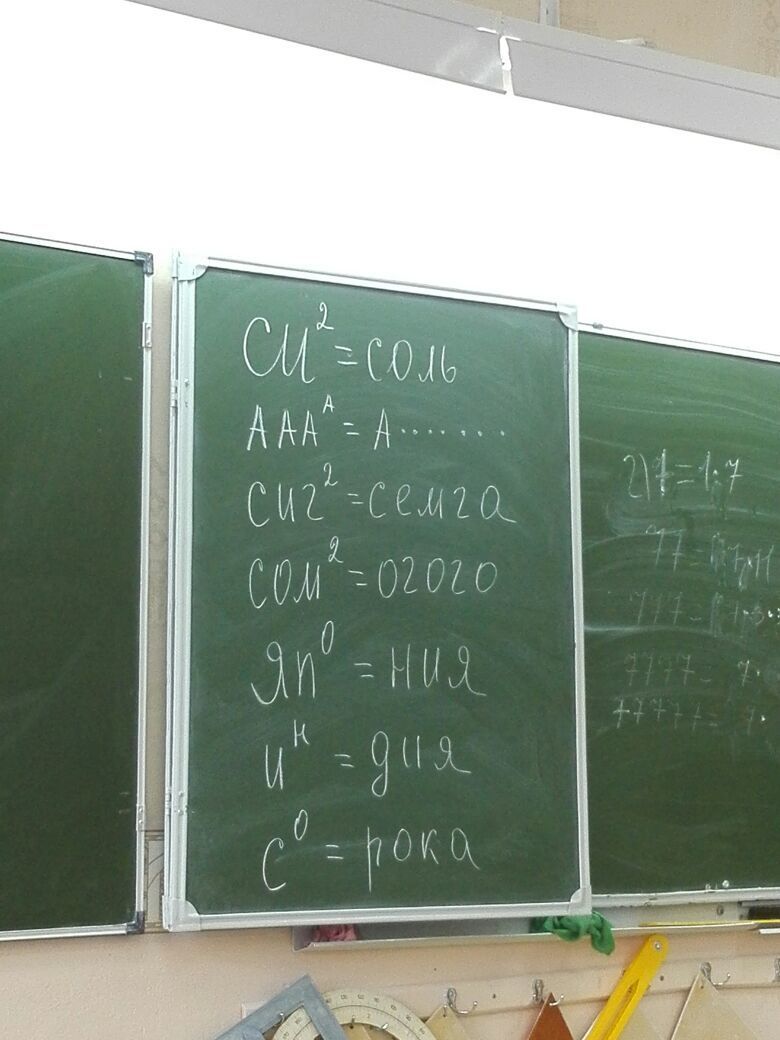 СИ² = СОЛЬ
ААА^А = А.......
СИГ² = СЕМГА
СОМ² = ОГОГО
ЯП⁰ = НИЯ
И^Н = ДИЯ
С⁰ = РОКА
2) 1 = 1:7
77 =
777 =
7777 =
77777 =